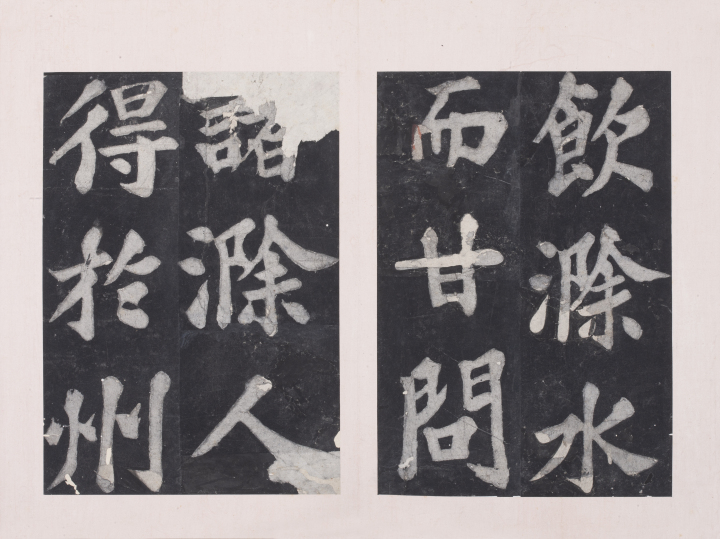 飲滁水
而甘問
諸滁人
得於州